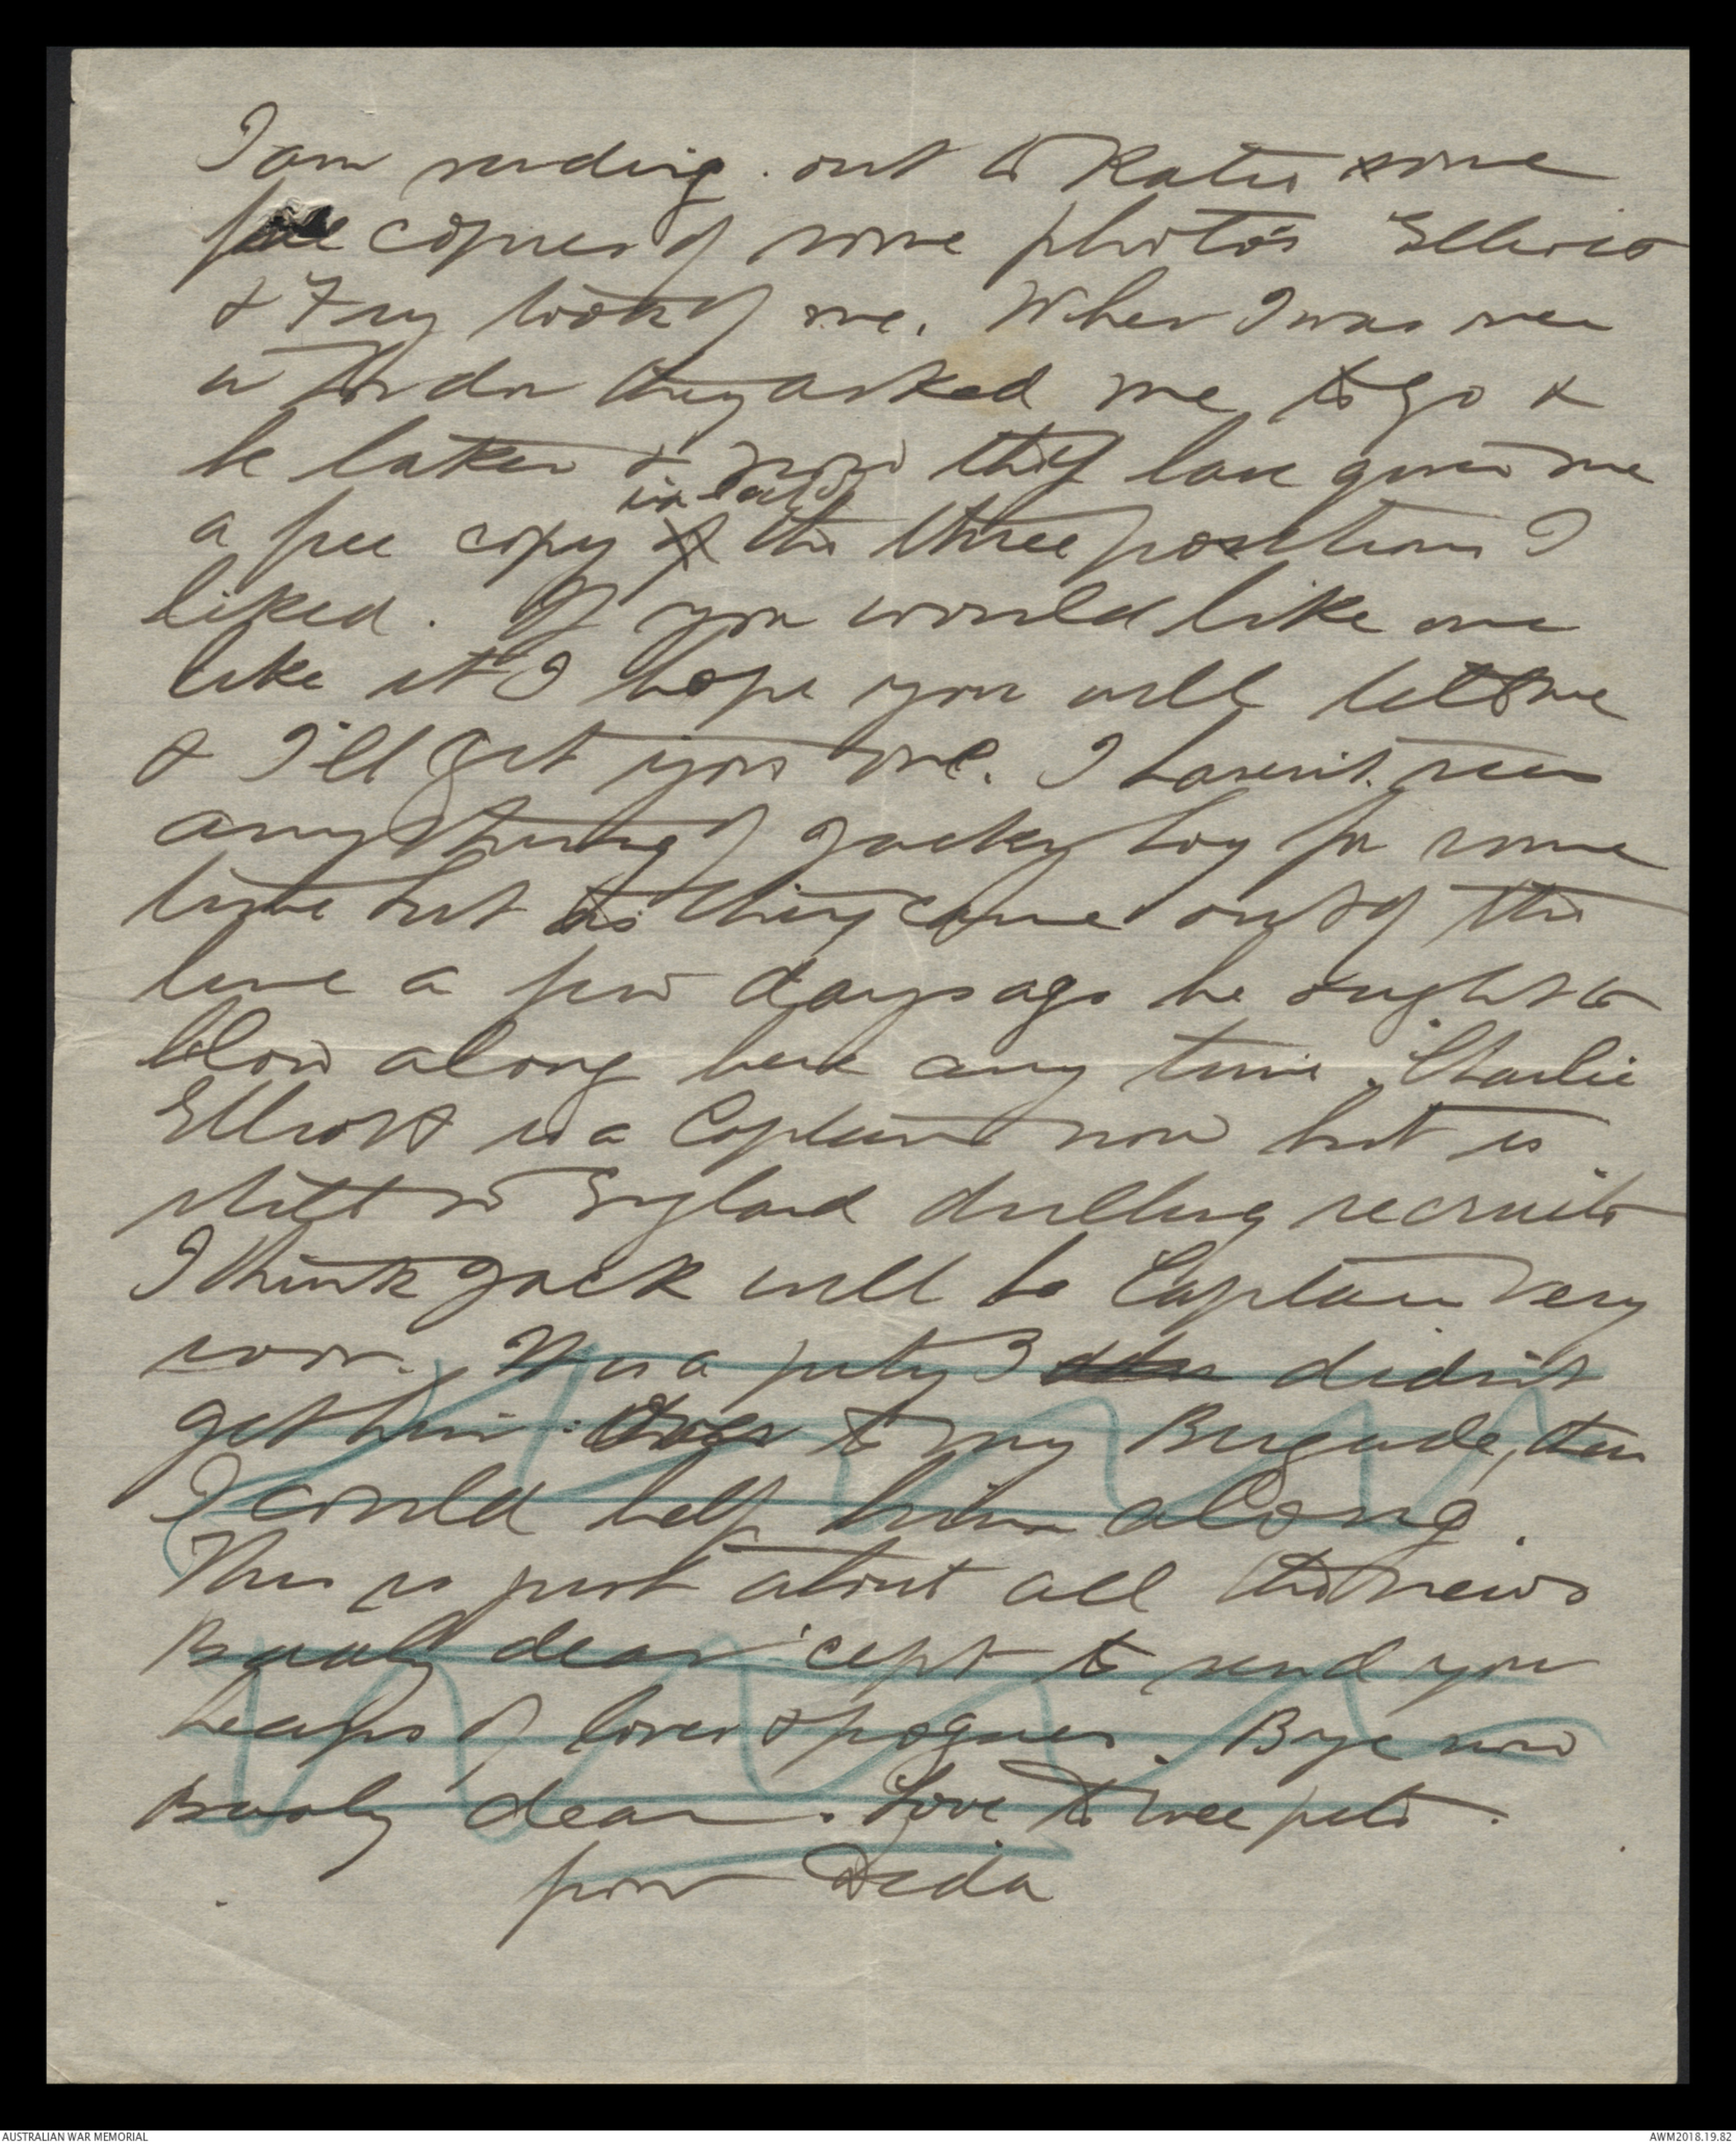 I am sending out to Katie some
free copies of some photos Elliott
& Fry took of me. When I was
in London they asked me to go &
be taken & now they have given me
a free copy in each of the three positions I
liked. If you would like one
like it I hope you will let me
& I'll get you one. I haven't seen
anything of Jacky boy for some
time but as they came out of the
line a few days ago he ought to
blow along here any time. Charlie
Elliott is a Captain now but is
still in England drilling recruits
I think Jack will be Captain very
soon. It is a pity I didn't
get him to my Brigade, then
I could help him along.
This is just about all the news
Baaly dear 'cept to send you
heaps of love & pogues. Bye now
Baaly dear. Love to wee pets.
from Dida
AUSTRALIAN WAR MEMORIAL
AWM2018.19.82